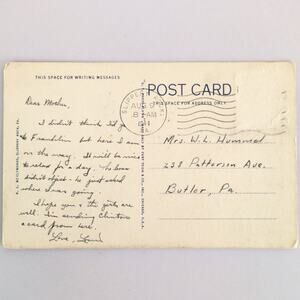 THIS SPACE FOR WRITING MESSAGES
POST CARD
THIS SPACE FOR ADDRESS ONLY
SLIPPERY ROCK
AUG 9
8 AM
PA.
Dear Mother,
I didn't think I'd go
to Franklin but here I am
on the way. It will be nice
to relax for a day.
didn't object - he just asked
where I was going.
I hope you & the girls are
well. I'm sending Clinton
a card from here.
Love,
Mrs. W. L. Hummel
238 Patterson Ave.
Butler, Pa.